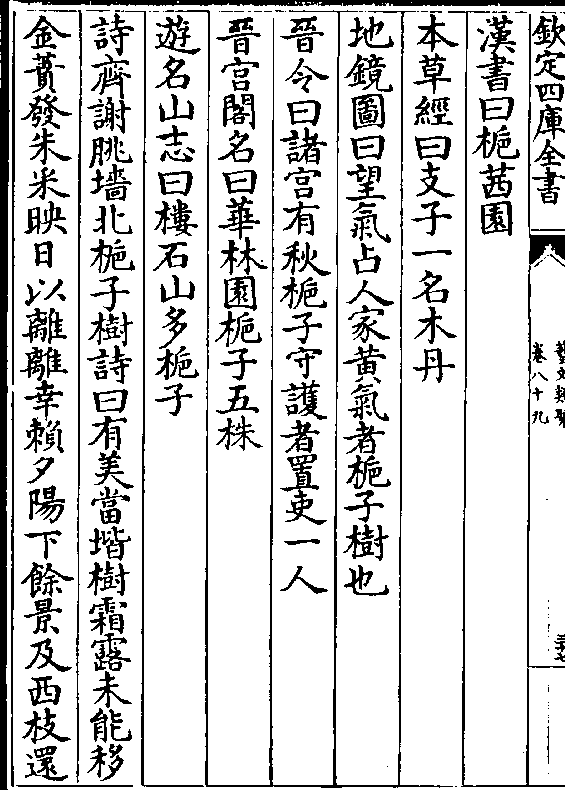 欽定四庫全書
藝文類聚
卷八十九
漢書曰梔茜園
本草經曰支子一名木丹
地鏡圖曰望氣占人家黃氣者梔子樹也
晉令曰諸宫有秋梔子守護者置吏一人
晉宫閣名曰華林園梔子五株
遊名山志曰樓石山多梔子
詩齊謝朓墻北梔子樹詩曰有美當堦樹霜露未能移
金蕡發朱米映日以離離幸賴夕陽下餘景及西枝還